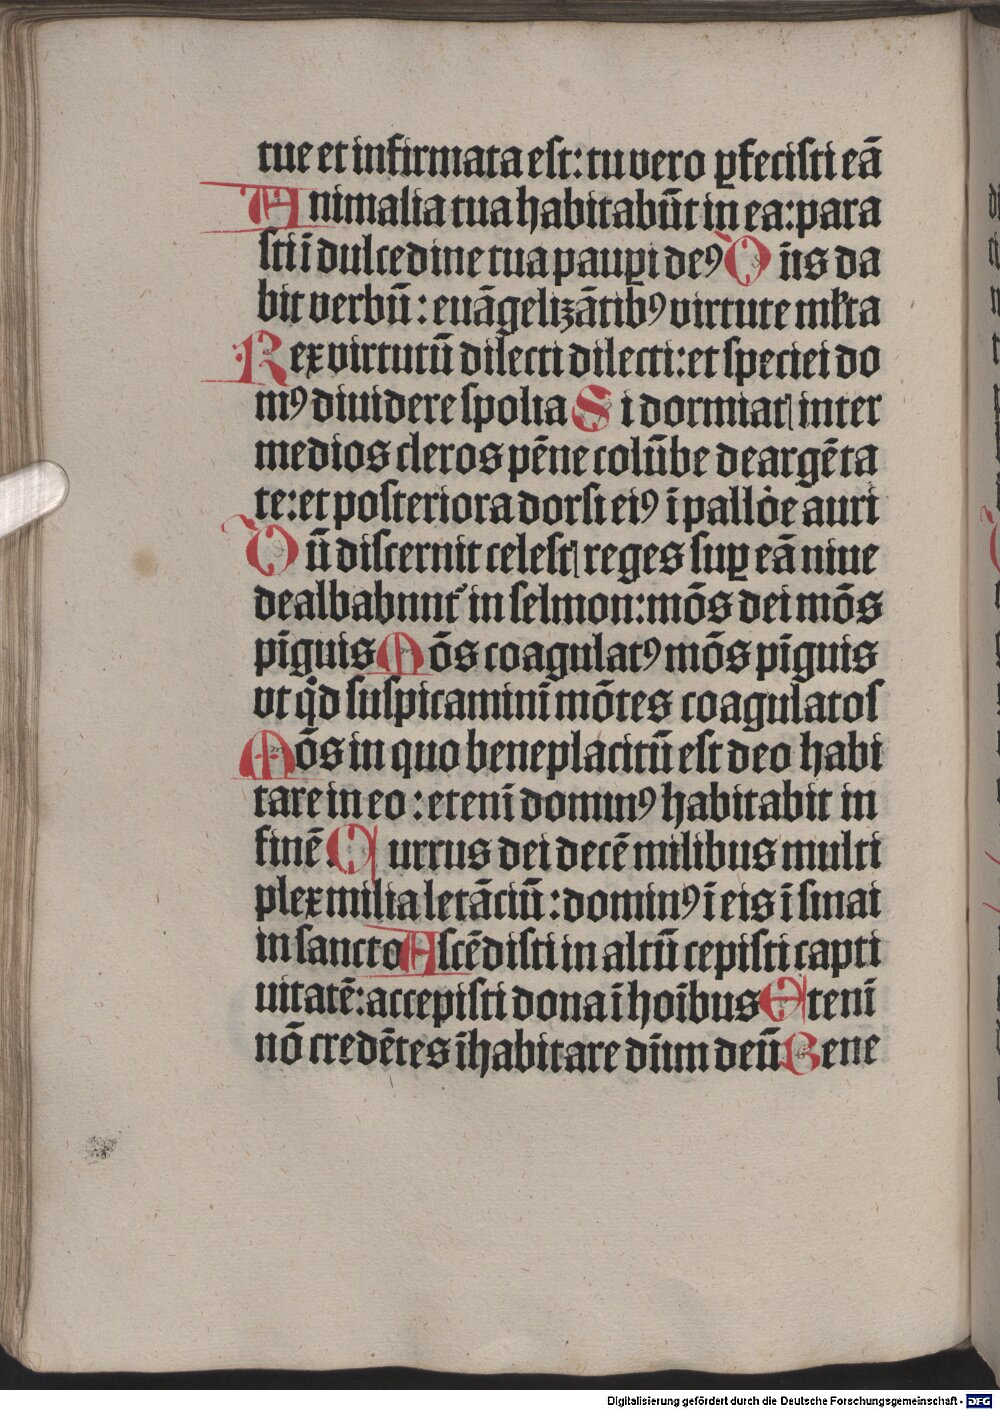 tue et infirmata est: tu vero ꝑfecisti eā
Animalia tua habitabūt in ea: para
sti ī dulcedine tua pauꝑi deꝰ Dūs da
bit verbū: euāgelizātibꝰ virtute ml̄ta
Rex virtutū dilecti dilecti: et speciei do
mꝰ diuidere spolia Si dormiatꝭ inter
medios cleros pēne colūbe deargēta
te: et posteriora dorsi eiꝰ ī pallōe auri
Dū discernit celestꝭ reges suꝑ eā niue
dealbabunt᷑ in selmon: mōs dei mōs
pīguis Mōs coagulatꝰ mōs pīguis
vt qͥd suspicaminī mōtes coagulatos
Mōs in quo beneplacitū est deo habi
tare in eo: etenī dominꝰ habitabit in
finē. Currus dei decē milibus multi
plex milia letāciū: dominꝰ ī eis ī sinai
in sancto Ascēdisti in altū cepisti capti
uitatē: accepisti dona ī hoībus Etenī
nō credētes īhabitare dūm deū Bene
Digitalisierung gefördert durch die Deutsche Forschungsgemeinschaft - DFG